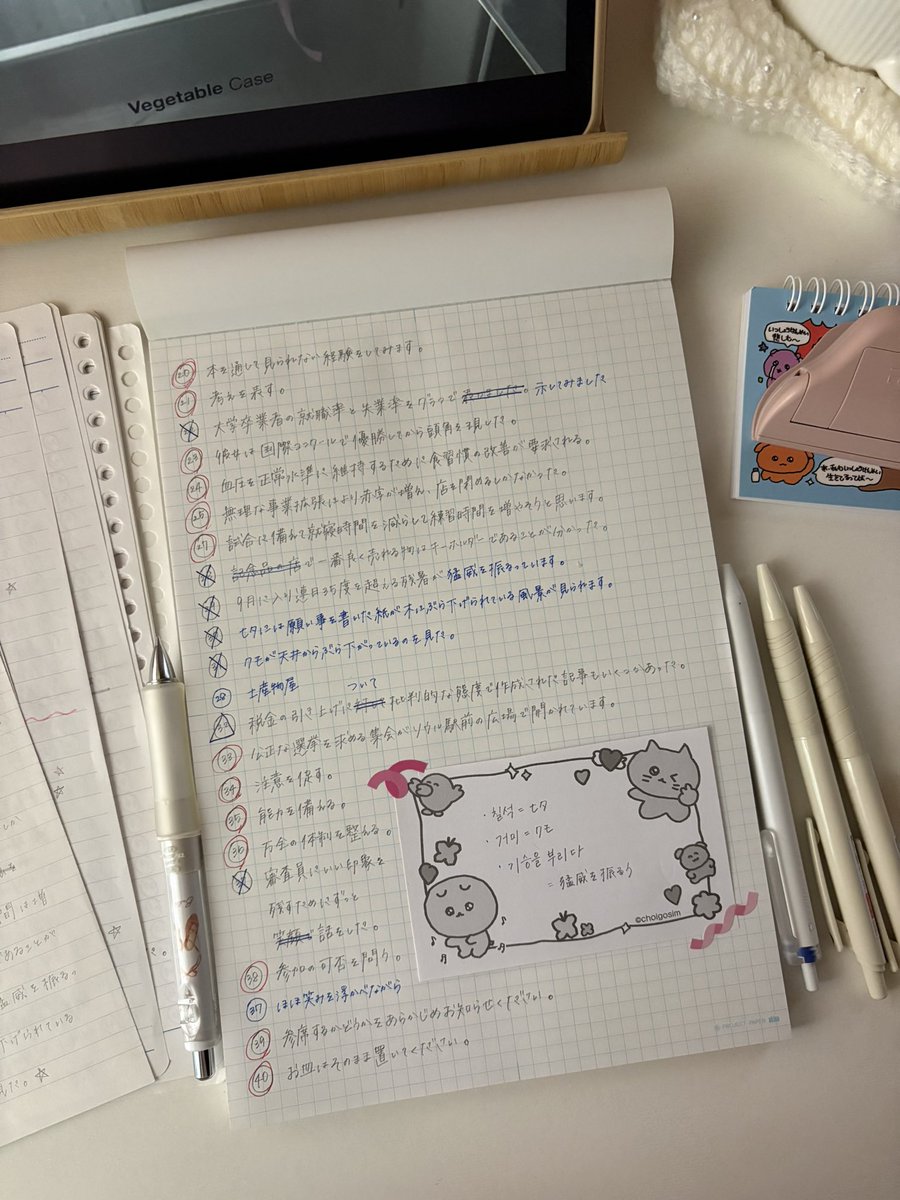 Vegetable Case
⑳ 本を通して見られない経験をしてみます。
㉑ 考えを表す。
大学卒業者の就職率と失業率をグラフで 。示してみました
㉓ 彼女は国際コンクールで優勝してから頭角を現した。
㉔ 血圧を正常水準に維持するために食習慣の改善が要求される。
㉕ 無理な事業拡張により赤字が増え、店を閉めるしかなかった。
㉗ 試合に備えて就寝時間を減らして練習時間を増やそうと思います。
記念品の店で一番良く売れる物はキーホルダーであることが分かった。
9月に入り連日35度を超える残暑が猛威を振るっています。
七夕には願い事を書いた紙が木にぶら下げられている風景が見られます。
クモが天井からぶら下がっているのを見た。
㉘ 土産物屋
ついて
32 税金の引き上げに 批判的な態度で作成された記事もいくつかあった。
㉝ 公正な選挙を求める集会がソウル駅前の広場で開かれています。
㉞ 注意を促す。
㉟ 能力を備える。
㊱ 万全の体制を整える。
審査員にいい印象を
残すためにずっと
笑顔で話をした。
㊳ 参加の可否を問う。
㊲ ほほ笑みを浮かべながら
㊴ 参席するかどうかをあらかじめお知らせください。
㊵ お皿はそのまま置いてください。
・칠석 = 七夕
・거미 = クモ
・기승을 부리다
= 猛威を振るう
©choigosim
PROJECT PAPER
いっしょうけんめい
間は増
あることが
猛威を振るっ
下げられている
見た。